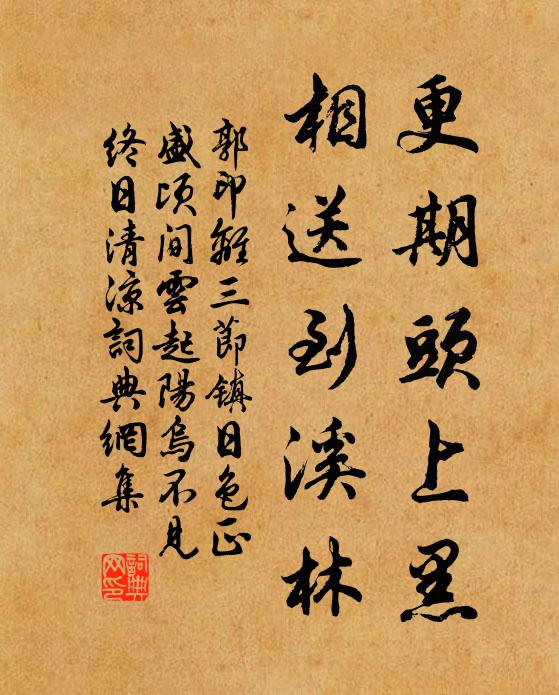 更期頭上黑
相送到溪林
郭印離三節鎮日色正
盛頃間雲起陽烏不見
終日清涼詞典網集
詞典
网印